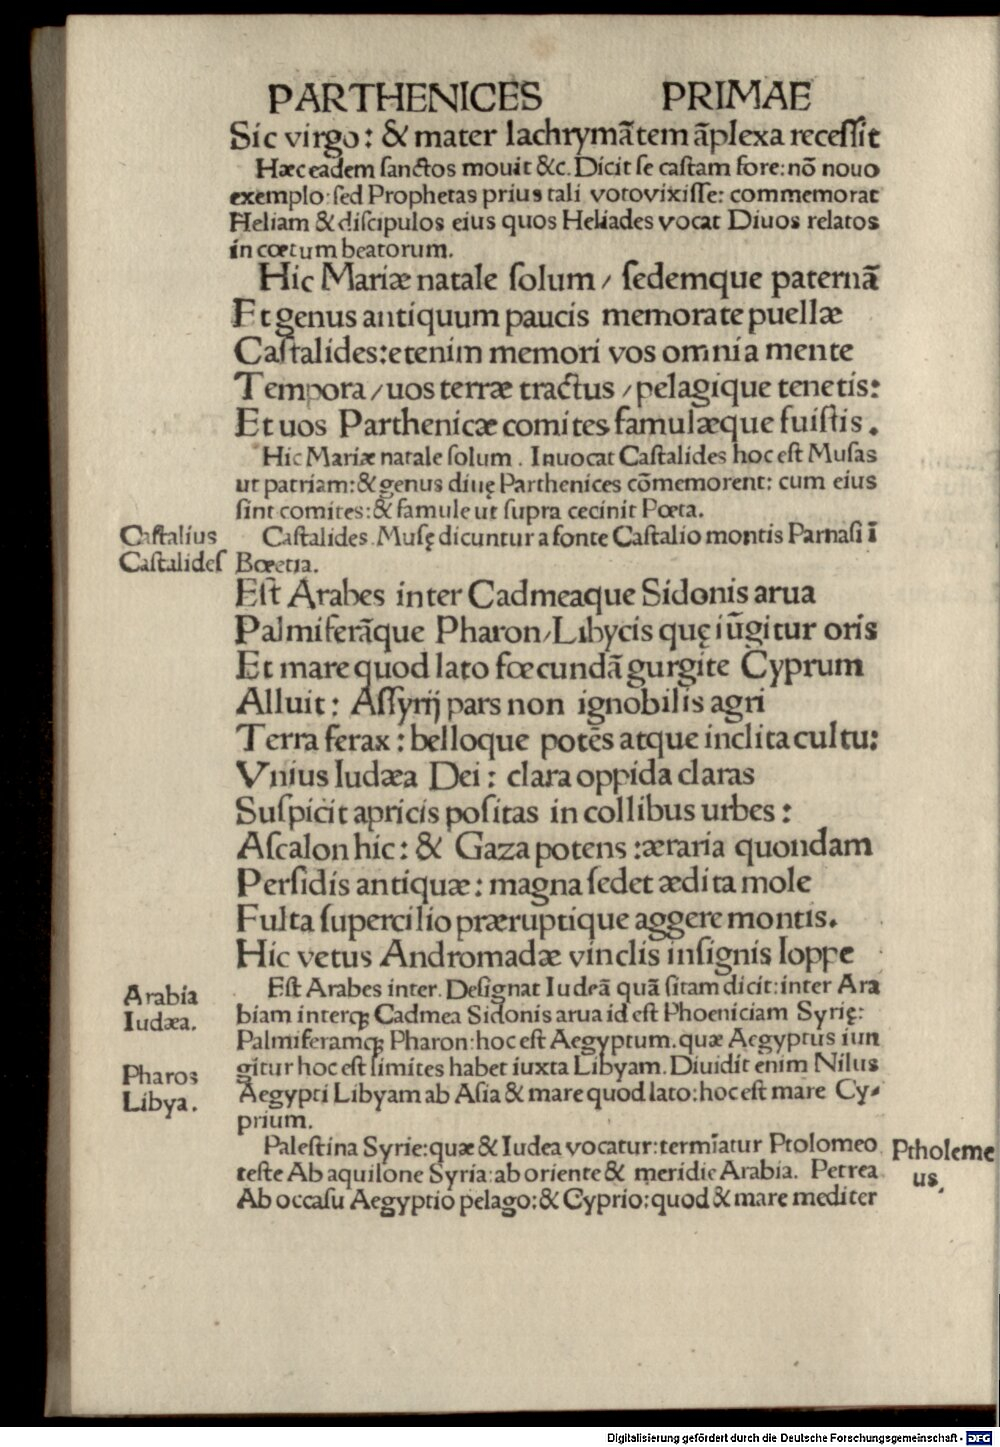 PARTHENICES PRIMAE
Sic virgo: & mater lachrymãtem ãplexa recessit
Hæc eadem sanctos mouit &c. Dicit se castam fore: nõ nouo
exemplo: sed Prophetas prius tali voto vixisse: commemorat
Heliam & discipulos eius quos Heliades vocat Diuos relatos
in cœtum beatorum.
Hic Mariæ natale solum / sedemque paternã
Et genus antiquum paucis memorate puellæ
Castalides: etenim memori vos omnia mente
Tempora / uos terræ tractus / pelagique tenetis:
Et uos Parthenicæ comites famulæque fuistis.
Hic Mariæ natale solum. Inuocat Castalides hoc est Musas
ut patriam: & genus diuę Parthenices cõmemorent: cum eius
sint comites: & famule ut supra cecinit Pœta.
Castalius
Castalides. Musę dicuntur a fonte Castalio montis Parnasi ĩ
Castalides
Bœetia.
Est Arabes inter Cadmeaque Sidonis arua
Palmiferãque Pharon/Libycis quę iũgitur oris
Et mare quod lato fœcundã gurgite Cyprum
Alluit: Assyrij pars non ignobilis agri
Terra ferax: belloque potẽs atque inclita cultu:
Vnius Iudæa Dei: clara oppida claras
Suspicit apricis positas in collibus urbes:
Ascalon hic: & Gaza potens: æraria quondam
Persidis antiquæ: magna sedet ædita mole
Fulta supercilio præruptique aggere montis.
Hic vetus Andromadæ vinclis insignis Ioppe
Est Arabes inter. Designat Iudeã quã sitam dicit: inter Ara
Arabia
biam interqꝫ Cadmea Sidonis arua id est Phoeniciam Syrię:
Iudæa.
Palmiferamqꝫ Pharon: hoc est Aegyptum. quæ Aegyptus iun
gitur hoc est limites habet iuxta Libyam. Diuidit enim Nilus
Pharos
Aegypti Libyam ab Asia & mare quod lato: hoc est mare Cy-
Libya.
prium.
Palestina Syrie: quæ & Iudea vocatur: termĩatur Ptolomeo
Ptholeme
teste Ab aquilone Syria: ab oriente & meridie Arabia. Petrea
us.
Ab occasu Aegyptio pelago: & Cyprio: quod & mare mediter
Digitalisierung gefördert durch die Deutsche Forschungsgemeinschaft - DFG